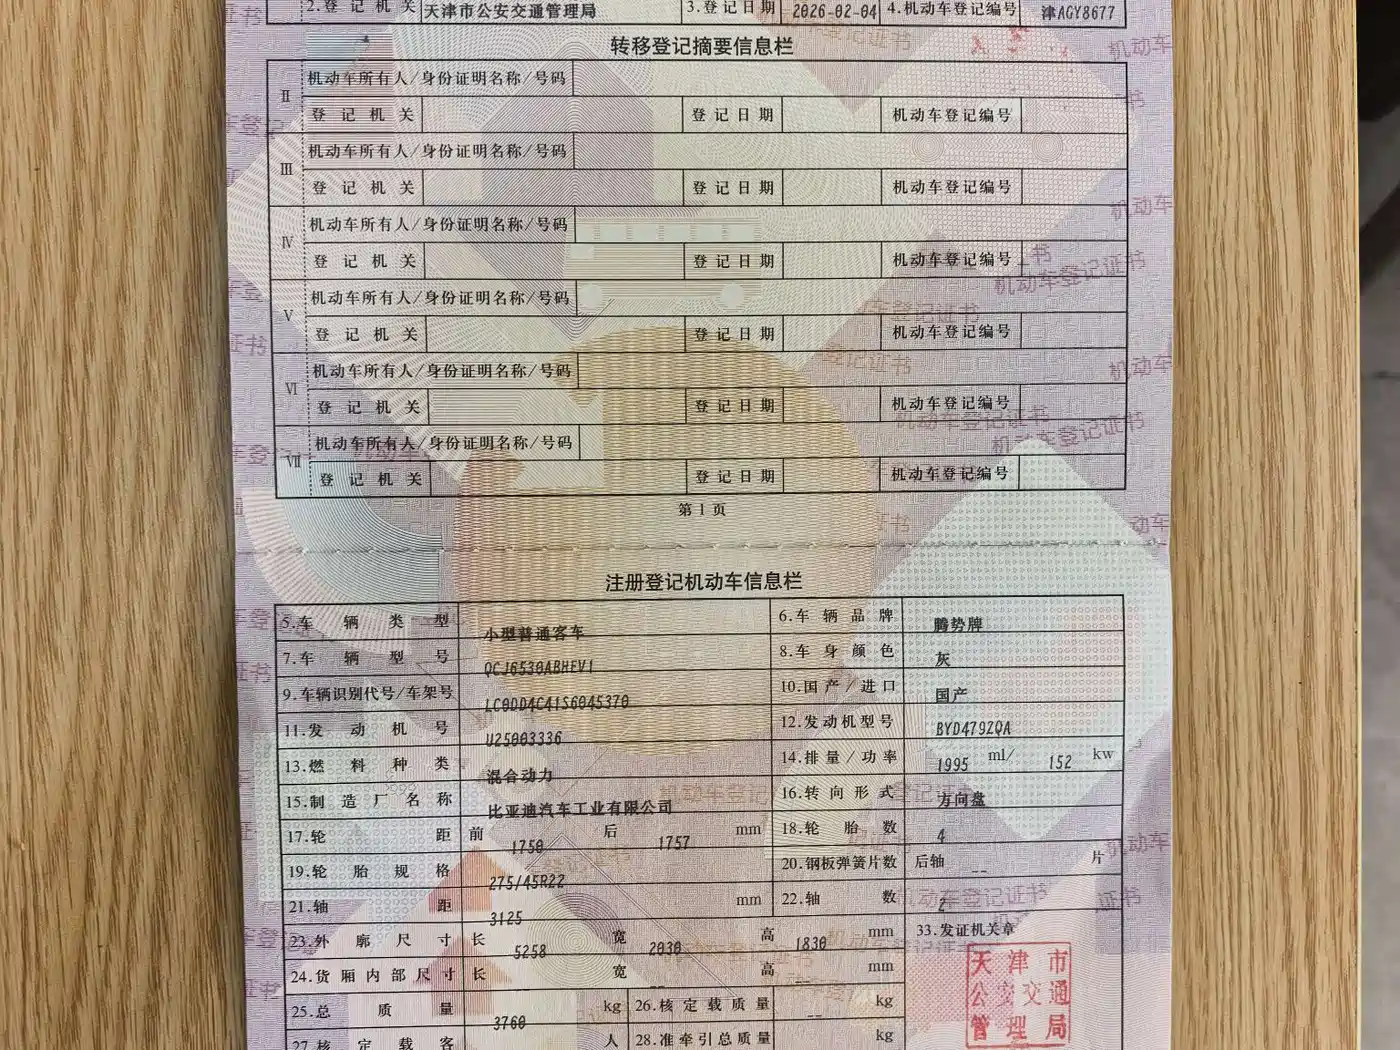 2.登记机关 天津市公安交通管理局 3.登记日期 2026-02-04 4.机动车登记编号 津AGY8677
转移登记摘要信息栏
Ⅱ 机动车所有人/身份证明名称/号码
登记机关 登记日期 机动车登记编号
Ⅲ 机动车所有人/身份证明名称/号码
登记机关 登记日期 机动车登记编号
Ⅳ 机动车所有人/身份证明名称/号码
登记机关 登记日期 机动车登记编号
Ⅴ 机动车所有人/身份证明名称/号码
登记机关 登记日期 机动车登记编号
Ⅵ 机动车所有人/身份证明名称/号码
登记机关 登记日期 机动车登记编号
Ⅶ 机动车所有人/身份证明名称/号码
登记机关 登记日期 机动车登记编号
第1页
注册登记机动车信息栏
5.车辆类型 小型普通客车 6.车辆品牌 腾势牌
7.车辆型号 QCJ6530ABHEV1 8.车身颜色 灰
9.车辆识别代号/车架号 LC0DD4C41S6045370 10.国产/进口 国产
11.发动机号 U25003336 12.发动机型号 BYD479ZQA
13.燃料种类 混合动力 14.排量/功率 1995 ml/ 152 kw
15.制造厂名称 比亚迪汽车工业有限公司 16.转向形式 方向盘
17.轮距 前 1750 后 1757 mm 18.轮胎数 4
19.轮胎规格 275/45R22 20.钢板弹簧片数 后轴 -- 片
21.轴距 3125 mm 22.轴数 2
23.外廓尺寸 长 5258 宽 2030 高 1830 mm 33.发证机关章
24.货厢内部尺寸 长 宽 -- 高 -- mm
25.总质量 3760 kg 26.核定载质量 -- kg
27.核定载客 人 28.准牵引总质量 kg
天津市
公安交通
管理局